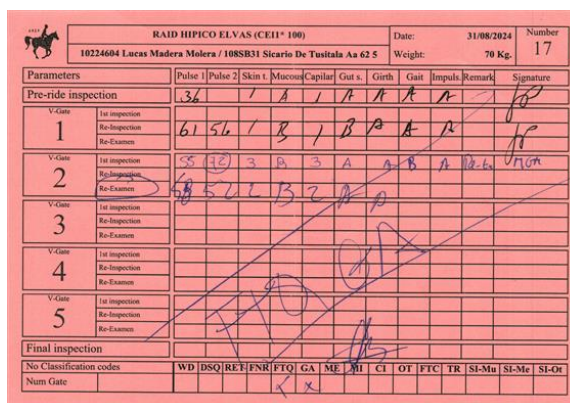 RAID HIPICO ELVAS (CEI1* 100) Date: 31/08/2024 Number
10224604 Lucas Madera Molera / 108SB31 Sicario De Tusitala Aa 62 5 Weight: 70 Kg. 17
Parameters Pulse 1 Pulse 2 Skin t. Mucous Capilar Gut s. Girth Gait Impuls. Remark Signature
Pre-ride inspection 36 1 A 1 A A A A
V-Gate 1st inspection
1 Re-Inspection 61 56 1 B 1 B A A A
Re-Examen
V-Gate 1st inspection 55 72 3 B 3 A A B A MGA
2 Re-Inspection
Re-Examen 52 2 B 2 A A
V-Gate 1st inspection
3 Re-Inspection
Re-Examen
V-Gate 1st inspection
4 Re-Inspection
Re-Examen
V-Gate 1st inspection
5 Re-Inspection
Re-Examen
FTQ GA
Final inspection
No Classification codes WD DSQ RET FNR FTQ GA ME MI CI OT FTC TR SI-Mu SI-Me SI-Ot
Num Gate x